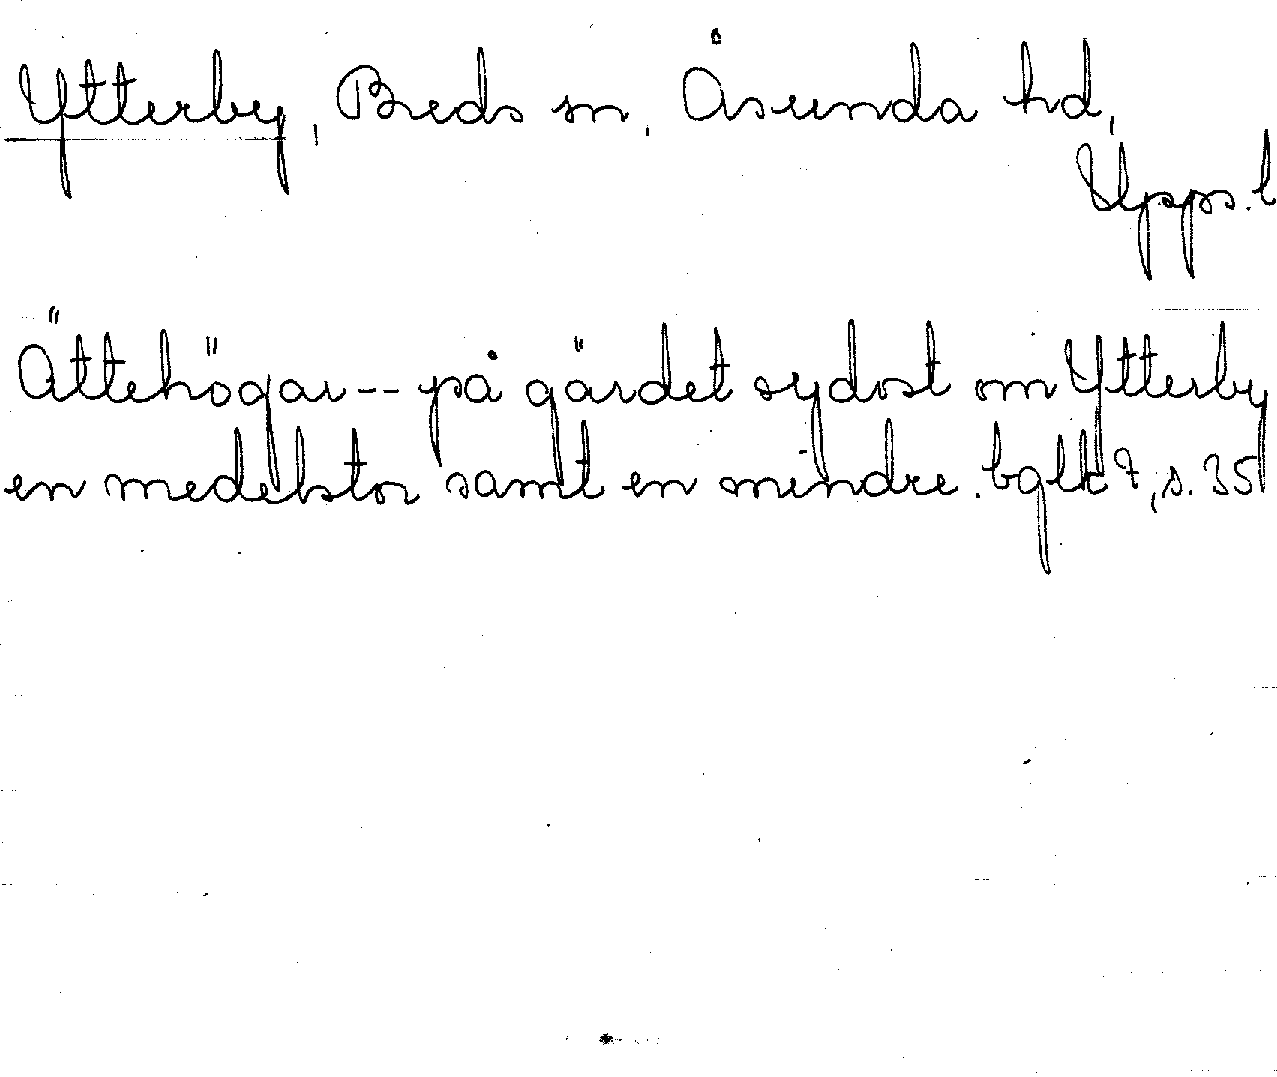 Ytterby, Breds sn, Åsunda hd,
Upps. l
Ättehögar -- på gärdet sydost om Ytterby
en medelstor samt en mindre. bglk 7, s. 35